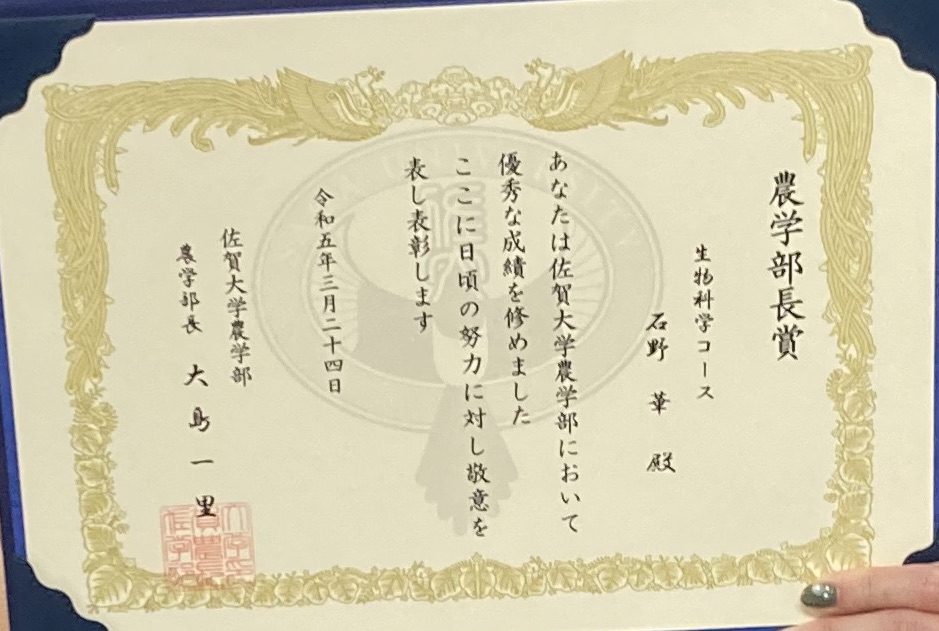 農学部長賞
生物科学コース
石野 華 殿
あなたは佐賀大学農学部において
優秀な成績を修めました
ここに日頃の努力に対し敬意を
表し表彰します
令和五年三月二十四日
佐賀大学農学部
農学部長 大島一里